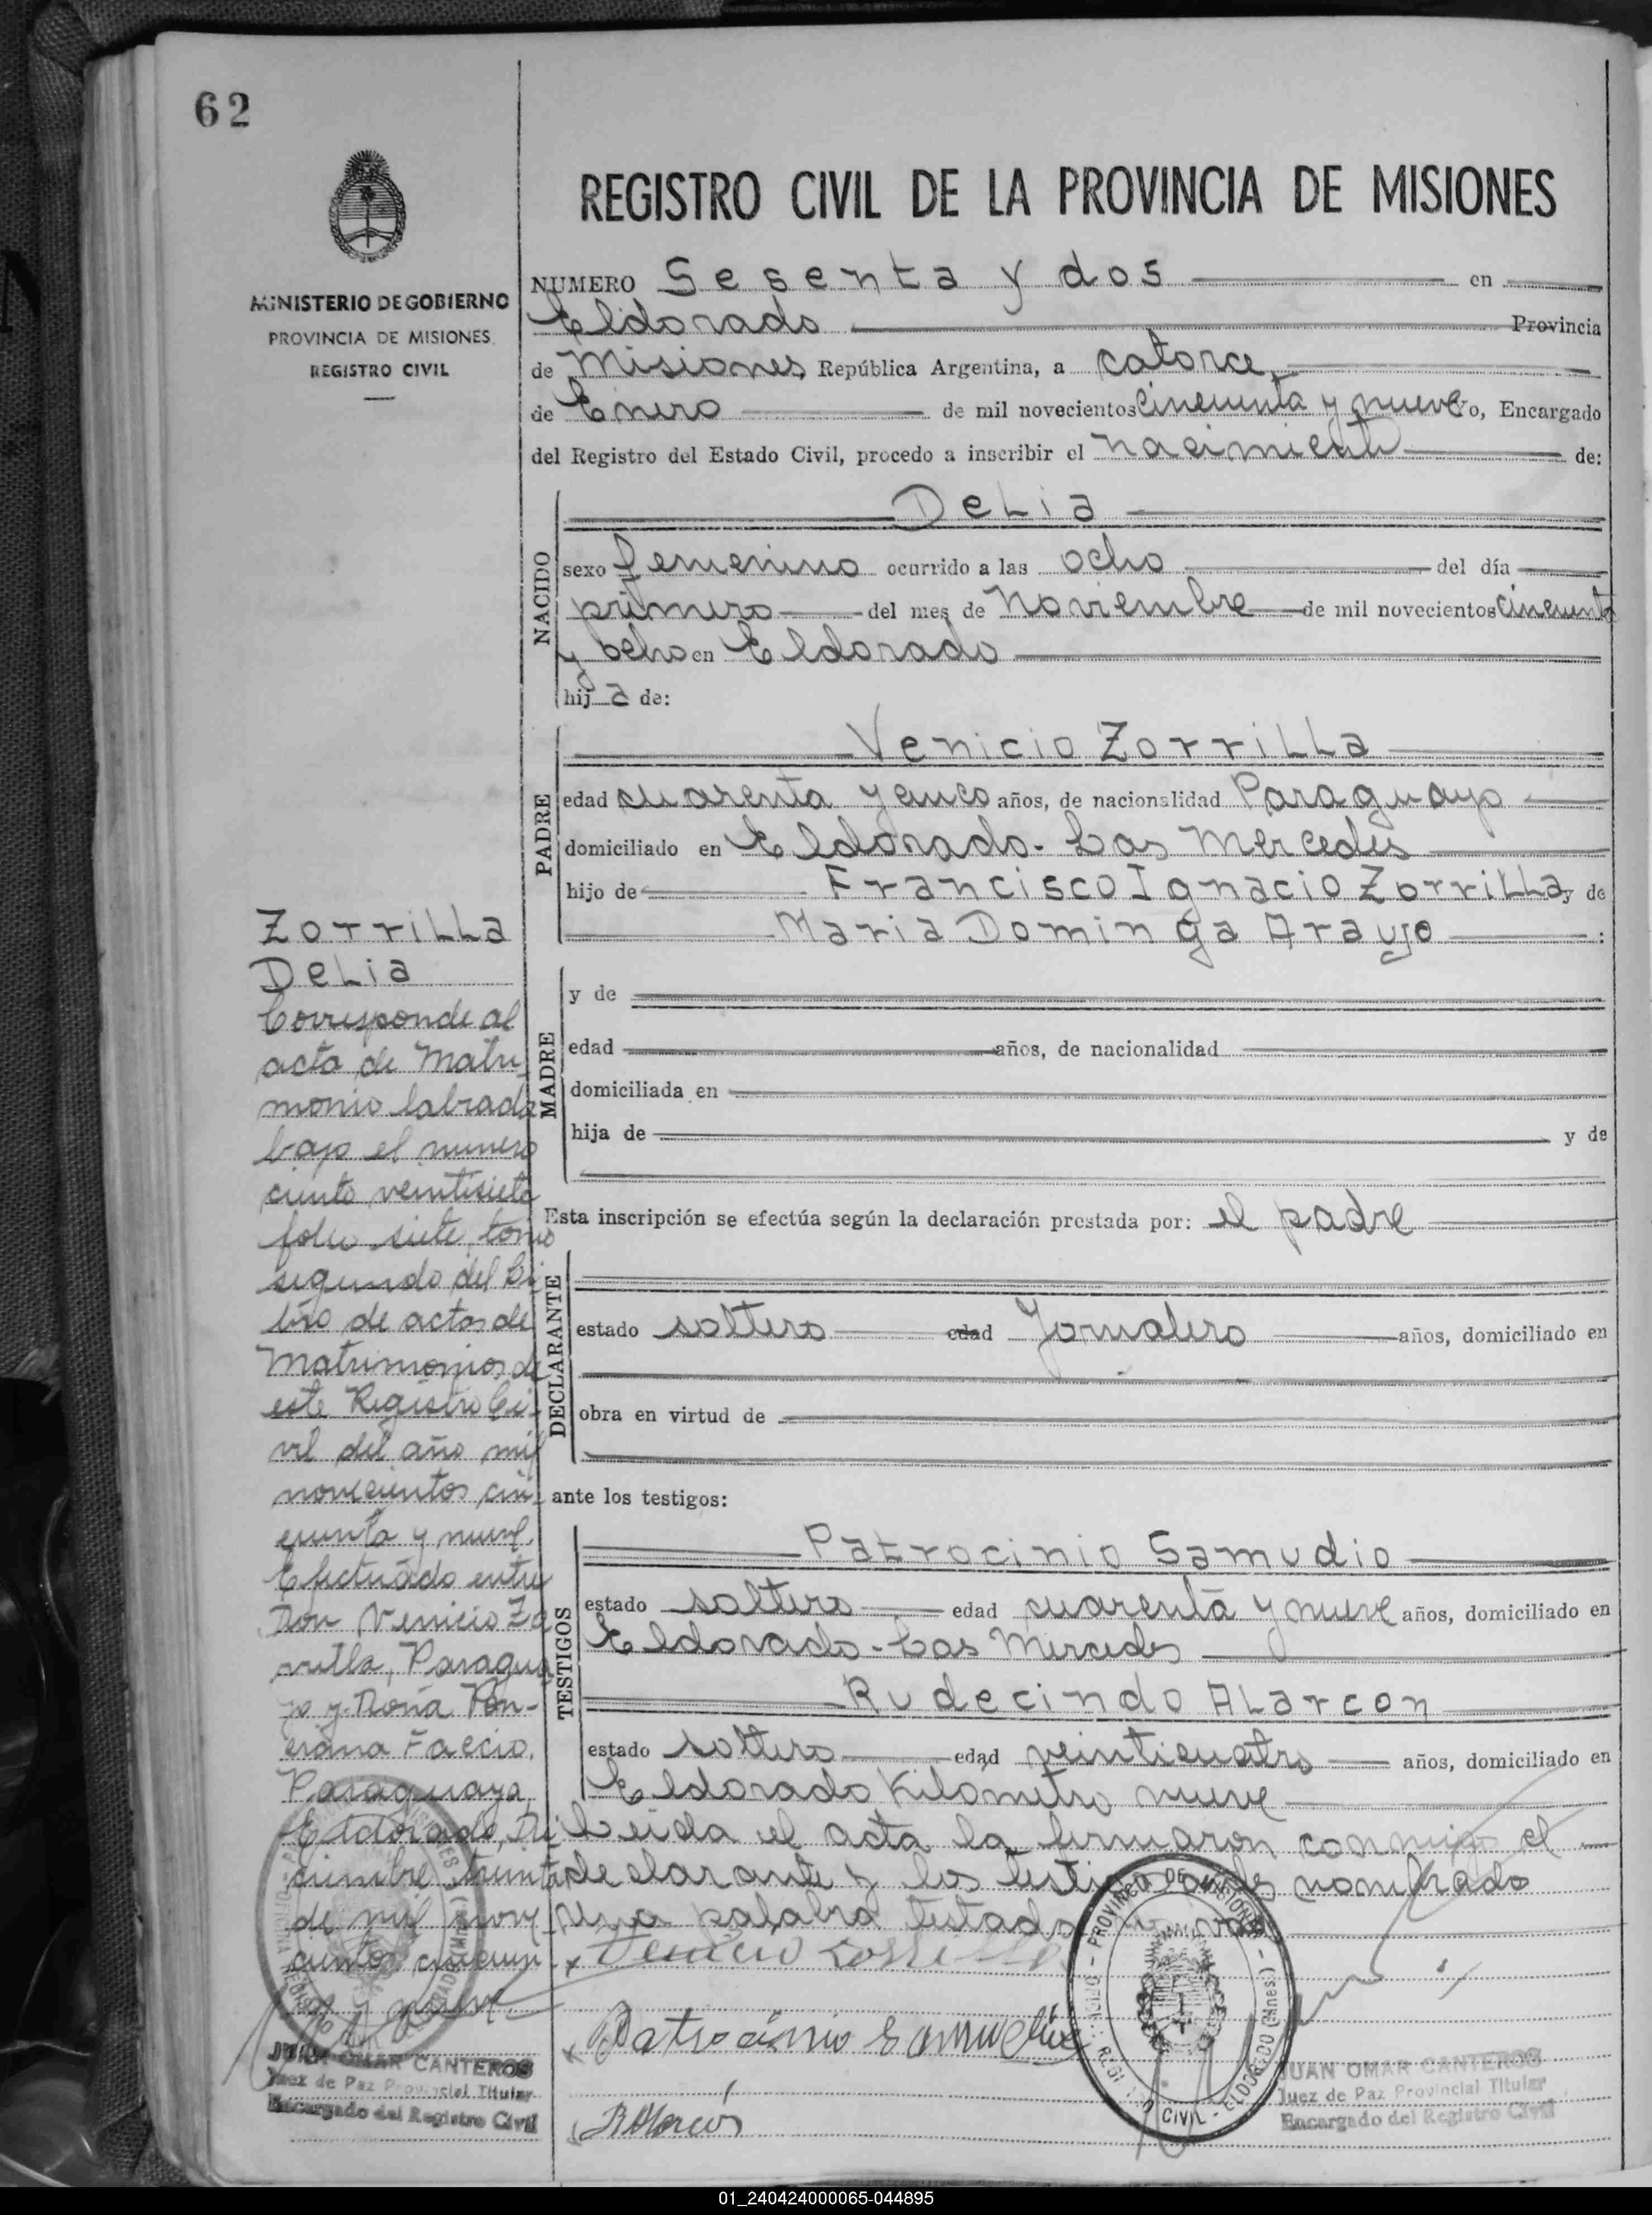 62
REGISTRO CIVIL DE LA PROVINCIA DE MISIONES
MINISTERIO DE GOBIERNO
PROVINCIA DE MISIONES
REGISTRO CIVIL
NUMERO Sesenta y dos en
Eldorado Provincia
de Misiones República Argentina, a catorce
de Enero de mil novecientos cincuenta y nueve yo, Encargado
del Registro del Estado Civil, procedo a inscribir el nacimiento de:
NACIDO
Delia
sexo femenino ocurrido a las ocho del día
primero del mes de Noviembre de mil novecientos cincuenta
y ocho en Eldorado
hija de:
PADRE
Venicio Zorrilla
edad cuarenta y cinco años, de nacionalidad Paraguayo
domiciliado en Eldorado - Las Mercedes
hijo de Francisco Ignacio Zorrilla y de
Maria Dominga Araujo :
MADRE
y de
edad años, de nacionalidad
domiciliada en
hija de y de
Esta inscripción se efectúa según la declaración prestada por: el padre
DECLARANTE
estado soltero edad Jornalero años, domiciliado en
obra en virtud de
ante los testigos:
TESTIGOS
Patrocinio Samudio
estado soltero edad cuarenta y nueve años, domiciliado en
Eldorado - Las Mercedes
Rudecindo Alarcon
estado soltero edad veinticuatro años, domiciliado en
Eldorado Kilometro nueve
Leida el acta la firmaron conmigo el
declarante y los testigos antes nombrado
Una palabra testada no vale
Venicio Zorrilla
Patrocinio Samudio
Zorrilla
Delia
Corresponde al
acta de Matri-
monio labrada
bajo el numero
ciento veintisiete
folio siete, tomo
segundo del Li-
bro de actas de
Matrimonios de
este Registro Ci-
vil del año mil
novecientos cin-
cuenta y nueve.
Efectuado entre
Don Venicio Zo
rrilla, Paragua
yo y Doña Pon-
ciana Faccio,
Paraguaya.
Eldorado, Di
ciembre treinta
de mil nove
cientos cincuen
ta y nueve.
JUAN OMAR CANTEROS
Juez de Paz Provincial Titular
Encargado del Registro Civil
PROVINCIA DE MISIONES - REGISTRO CIVIL - ELDORADO (Mnes.)
JUAN OMAR CANTEROS
Juez de Paz Provincial Titular
Encargado del Registro Civil
01_240424000065-044895